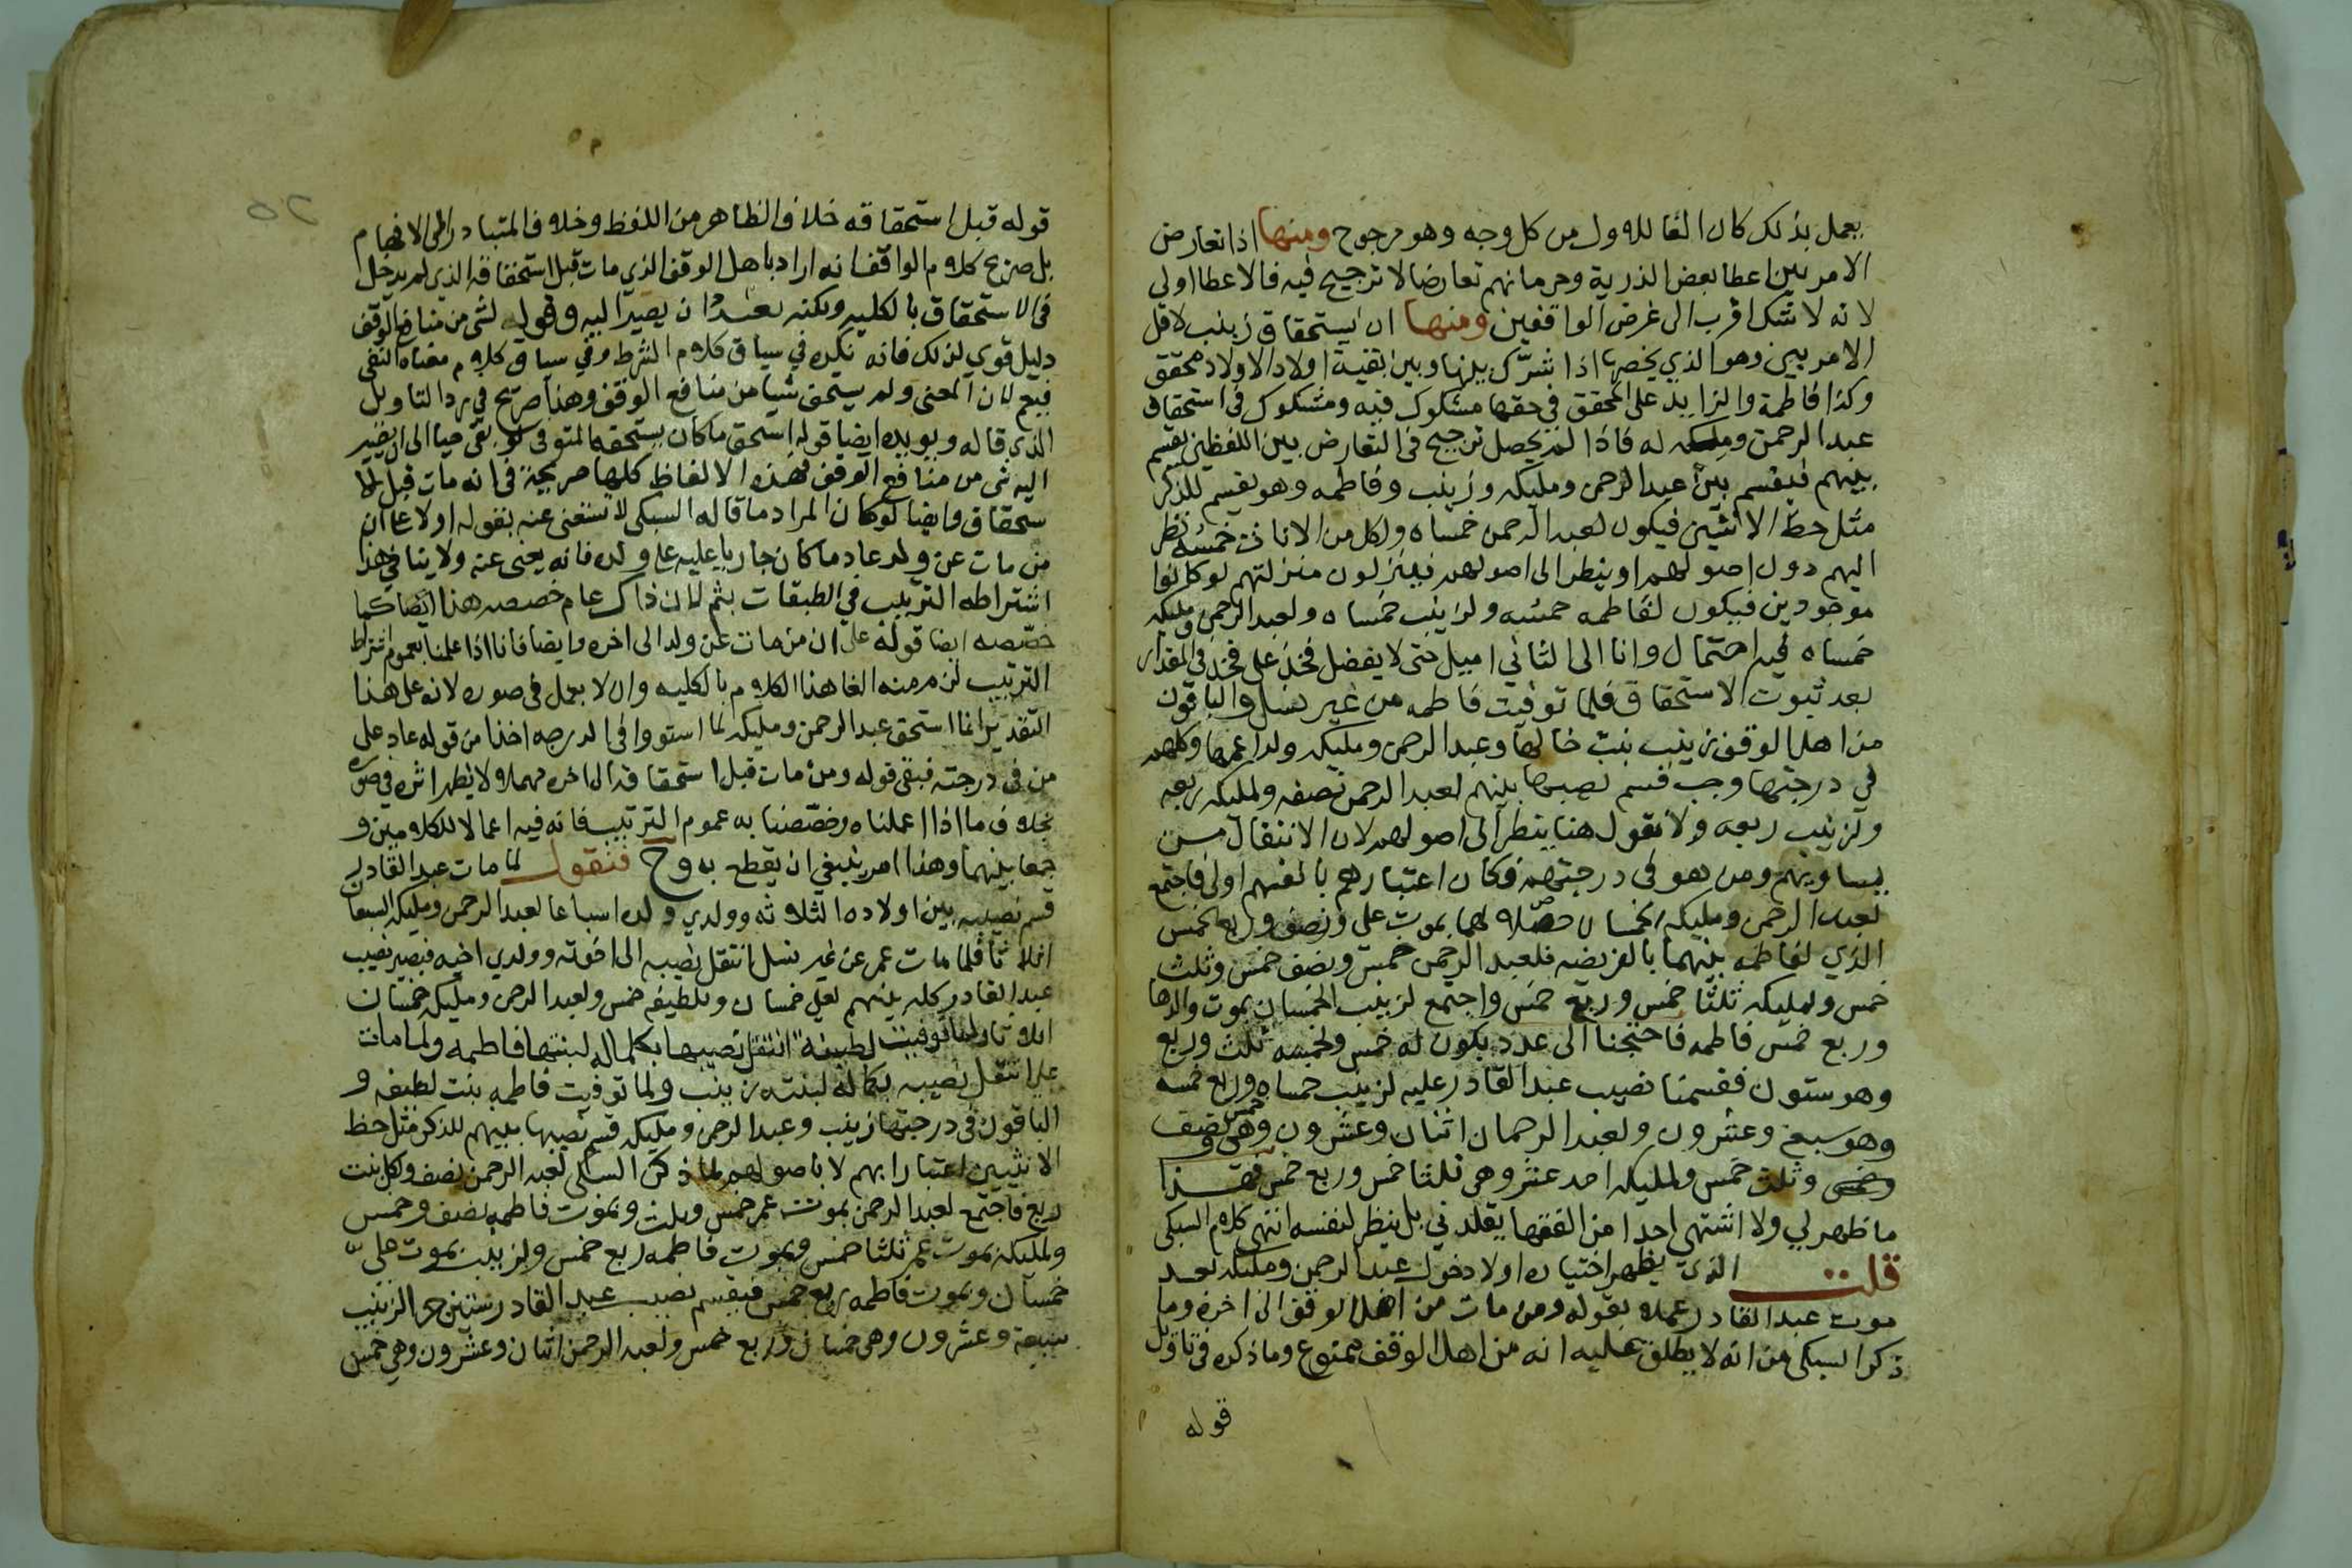 يعمل بذلك كان الغا للاول من كل وجه وهو مرجوح ومنها اذا تعارض
الامر بين اعطا بعض الذرية وحرمانهم تعارضا لا ترجيح فيه فالاعطا اولى
لانه لا شك اقرب الى غرض الواقفين ومنها ان استحقاق زينب لاقل
الامرين وهو الذي يخصها اذا شرك بينها وبين بقية اولاد الاولاد محقق
وكذا فاطمة والزايد على المحقق في حقها مشكوك فيه ومشكوك في استحقاق
عبد الرحمن ومليكه له فاذا لم يحصل ترجيح في التعارض بين اللفظين يقسم
بينهم فيقسم بين عبد الرحمن ومليكه وزينب وفاطمه وهو يقسم للذكر
مثل حظ الانثيين فيكون لعبد الرحمن خمساه ولكل من الاناث خمسه نظر
اليهم دون اصولهم او ينظر الى اصولهم فينزلون منزلتهم لو كانوا
موجودين فيكون لفاطمه خمسه ولزينب خمساه ولعبد الرحمن ومليكه
خمساه فيه احتمال وانا الى الثاني اميل حتى لا يفضل فخذ على فخذ في المقدار
بعد ثبوت الاستحقاق فلما توفيت فاطمه من غير نسل والباقون
من اهل الوقف زينب بنت خالها وعبد الرحمن ومليكه ولدا عمها وكلهم
في درجتها وجب قسم نصيبها بينهم لعبد الرحمن نصفه ولمليكه ربعه
ولزينب ربعه ولا نقول هنا ينظر الى اصولهم لان الانتقال من
يساويهم ومن هو في درجتهم فكان اعتبارهم بانفسهم اولى فاجتمع
لعبد الرحمن ومليكه الخمسان حصلا لهما بموت علي ونصف وربع الخمس
الذي لفاطمه بينهما بالفريضه فلعبد الرحمن خمس ونصف خمس وثلث
خمس ولمليكه ثلثا خمس وربع خمس واجتمع لزينب الخمسان بموت والدها
وربع خمس فاطمه فاحتجنا الى عدد يكون له خمس ولخمسه ثلث وربع
وهو ستون فقسمنا نصيب عبد القادر عليه لزينب خمساه وربع خمسه
وهو سبع وعشرون ولعبد الرحمان اثنان وعشرون وهي خمس ونصف
خمس وثلث خمس ولمليكه احد عشر وهي ثلثا خمس وربع خمس فهذا
ما ظهر لي ولا اشتهي احدا من الفقها يقلدني بل ينظر لنفسه انتهى كلام السبكى
قلت الذي يظهر اختياره اولا دخول عبد الرحمن ومليكه بعد
موت عبد القادر عملا بقوله ومن مات من اهل الوقف الى اخره وما
ذكره السبكى من انه لا يطلق عليه انه من اهل الوقف ممنوع وما ذكره في تاويل
قوله
٥٢
قوله قبل استحقاقه خلاف الظاهر من اللفظ وخلاف المتبادر الى الافهام
بل صريح كلام الواقف انه اراد باهل الوقف الذي مات قبل استحقاقه الذي لم يدخل
في الاستحقاق بالكليه ولكنه بصدد ان يصير اليه وقوله لشى من منافع الوقف
دليل قوي لذلك فانه نكره في سياق كلام الشرط وفي سياق كلام معناه النفى
فيعم لان المعنى ولم يستحق شيا من منافع الوقف وهذا صريح في رد التاويل
الذي قاله ويويده ايضا قوله استحق ما كان يستحقه المتوفى لو بقى حيا الى ان يصير
اليه شى من منافع الوقف فهذه الالفاظ كلها صريحة في انه مات قبل الا
ستحقاق وايضا لو كان المراد ما قاله السبكى لاستغنى عنه بقوله اولا على ان
من مات عن ولد عاد ما كان جاريا عليه على ولده فانه يغنى عنه ولا ينافي هذا
اشتراطه الترتيب في الطبقات بثم لان ذاك عام خصصه هذا ايضا كما
خصصه ايضا قوله على ان من مات عن ولد الى اخره وايضا فانا اذا علمنا بعموم اشتراط
الترتيب لزم منه الغا هذا الكلام بالكليه وان لا يعمل في صوره لانه على هذا
التقدير انما استحق عبد الرحمن ومليكه لما استووا في الدرجه اخذا من قوله عاد على
من في درجته فبقى قوله ومن مات قبل استحقاقه الى اخره مهملا ولا يظهر اثره في صوره
بخلاف ما اذا اعملناه وخصصنا به عموم الترتيب فانه فيه اعمالا للكلامين و
جمعا بينهما وهذا امر ينبغي ان يقطع به وح فنقول لما مات عبد القادر
قسم نصيبه بين اولاده الثلاثه وولدي ولده اسباعا لعبد الرحمن ومليكه السبعان
اثلاثا فلما مات عمر عن غير نسل انتقل نصيبه الى اخوته وولدي اخيه فيصير نصيب
عبد القادر كله بينهم لعلي خمسان وللطيفه خمس ولعبد الرحمن ومليكه خمسان
اثلاثا ولما توفيت لطيفه انتقل نصيبها بكماله لبنتها فاطمه ولما مات
علي انتقل نصيبه بكماله لبنته زينب ولما توفيت فاطمه بنت لطيفه و
الباقون في درجتها زينب وعبد الرحمن ومليكه قسم نصيبها بينهم للذكر مثل حظ
الانثيين اعتبارا بهم لا باصولهم لما ذكره السبكى لعبد الرحمن نصف ولكل بنت
ربع فاجتمع لعبد الرحمن بموت عمر خمس وثلث وبموت فاطمه نصف وخمس
ولمليكه بموت عمر ثلثا خمس وبموت فاطمه ربع خمس ولزينب بموت علي
خمسان وبموت فاطمه ربع خمس فيقسم نصيب عبد القادر ستين جزا لزينب
سبعة وعشرون وهي خمسان وربع خمس ولعبد الرحمن اثنان وعشرون وهي خمس